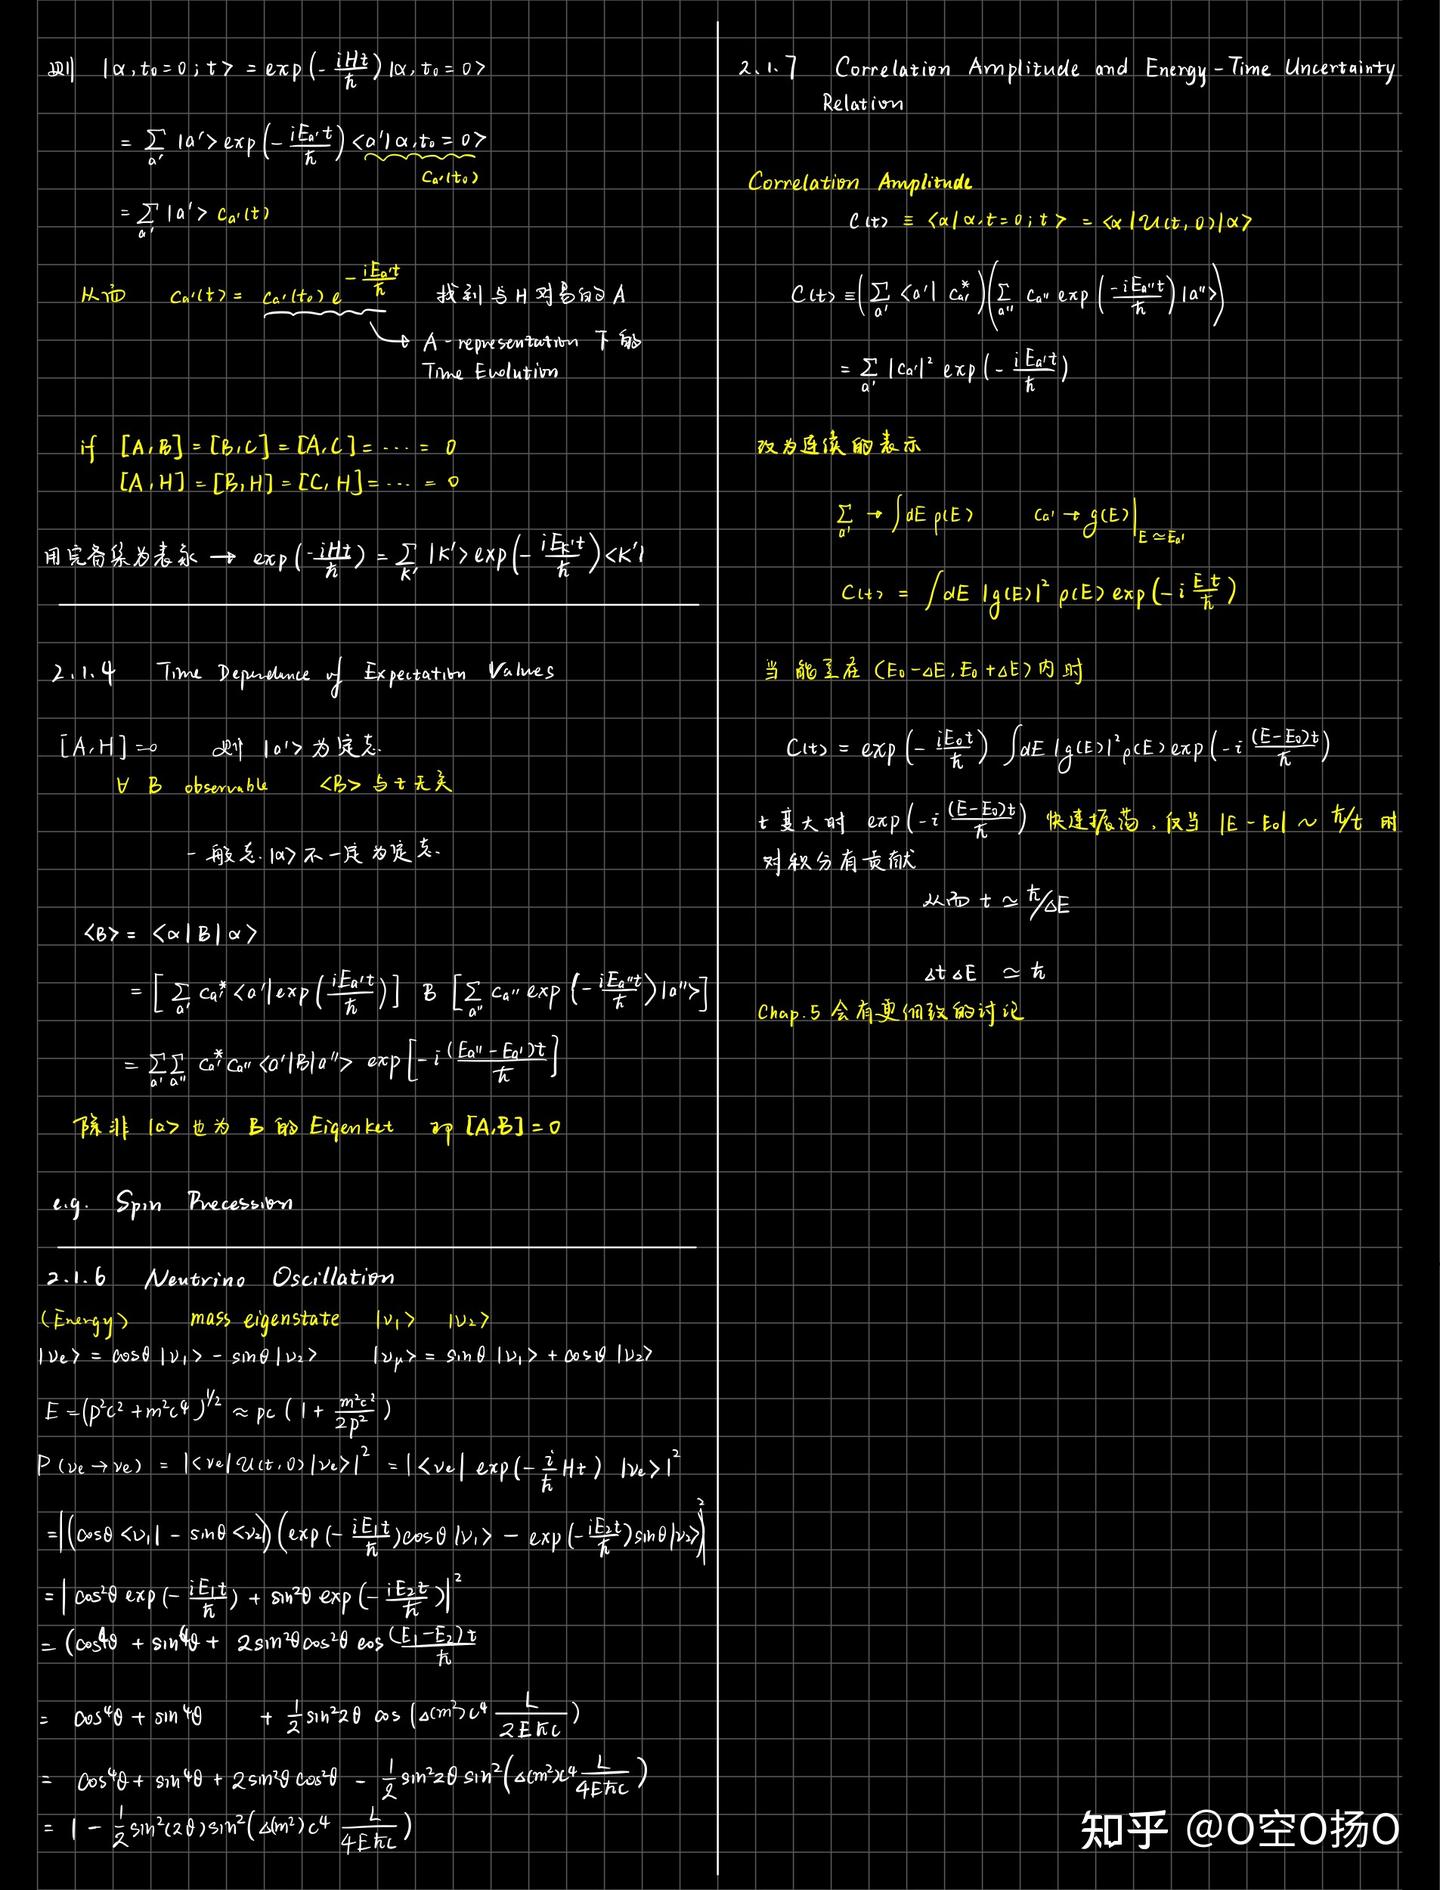 则 |α, t₀=0; t> = exp(-iHt/ħ) |α, t₀=0>
= Σ_a' |a'> exp(-iE_a't/ħ) <a'|α, t₀=0>
C_a'(t₀)
= Σ_a' |a'> C_a'(t)
从而 C_a'(t) = C_a'(t₀) e^(-iE_a't/ħ) 找到与H对易的A
A-representation 下的
Time Evolution
if [A,B] = [B,C] = [A,C] = ··· = 0
[A,H] = [B,H] = [C,H] = ··· = 0
用完备集为表示 → exp(-iHt/ħ) = Σ_K' |K'> exp(-iE_K't/ħ) <K'|
2.1.4 Time Dependence of Expectation Values
[A,H]=0 则 |a'> 为定态.
∀ B observable <B> 与t无关
一般态.|α>不一定为定态.
<B> = <α|B|α>
= [Σ_a' C_a'* <a'|exp(iE_a't/ħ)] B [Σ_a'' C_a'' exp(-iE_a''t/ħ)|a''>]
= Σ_a' Σ_a'' C_a'* C_a'' <a'|B|a''> exp[-i(E_a''-E_a')t/ħ]
除非 |a> 也为 B 的 Eigenket 即 [A,B]=0
e.g. Spin Precession
2.1.6 Neutrino Oscillation
(Energy) mass eigenstate |ν₁> |ν₂>
|νe> = cosθ |ν₁> - sinθ |ν₂> |νμ> = sinθ |ν₁> + cosθ |ν₂>
E = (p²c² + m²c⁴)^(1/2) ≈ pc (1 + m²c²/2p²)
P(νe→νe) = |<νe|U(t,0)|νe>|² = |<νe| exp(-i/ħ Ht) |νe>|²
= |(cosθ <ν₁| - sinθ <ν₂|)(exp(-iE₁t/ħ)cosθ |ν₁> - exp(-iE₂t/ħ)sinθ|ν₂>)|²
= |cos²θ exp(-iE₁t/ħ) + sin²θ exp(-iE₂t/ħ)|²
= (cos⁴θ + sin⁴θ + 2sin²θcos²θ cos (E₁-E₂)t/ħ
= cos⁴θ + sin⁴θ + 1/2 sin²2θ cos (Δ(m²)c⁴ L/2Eħc)
= cos⁴θ + sin⁴θ + 2sin²θ cos²θ - 1/2 sin²2θ sin²(Δ(m²)c⁴ L/4Eħc)
= 1 - 1/2 sin²(2θ) sin²(Δ(m²)c⁴ L/4Eħc)
2.1.7 Correlation Amplitude and Energy-Time Uncertainty
Relation
Correlation Amplitude
C(t) ≡ <α|α,t=0;t> = <α|U(t,0)|α>
C(t) ≡ (Σ_a' <a'| C_a'*)(Σ_a'' C_a'' exp(-iE_a''t/ħ)|a''>)
= Σ_a' |C_a'|² exp(-iE_a't/ħ)
改为连续的表示
Σ_a' → ∫dE ρ(E) C_a' → g(E)|_E≃E_a'
C(t) = ∫dE |g(E)|² ρ(E) exp(-i Et/ħ)
当能量在 (E₀-ΔE, E₀+ΔE) 内时
C(t) = exp(-iE₀t/ħ) ∫dE |g(E)|² ρ(E) exp(-i (E-E₀)t/ħ)
t变大时 exp(-i (E-E₀)t/ħ) 快速振荡, 仅当 |E-E₀| ~ ħ/t 时
对积分有贡献
从而 t ≃ ħ/ΔE
Δt ΔE ≃ ħ
Chap.5 会有更细致的讨论
知乎 @O空O扬O